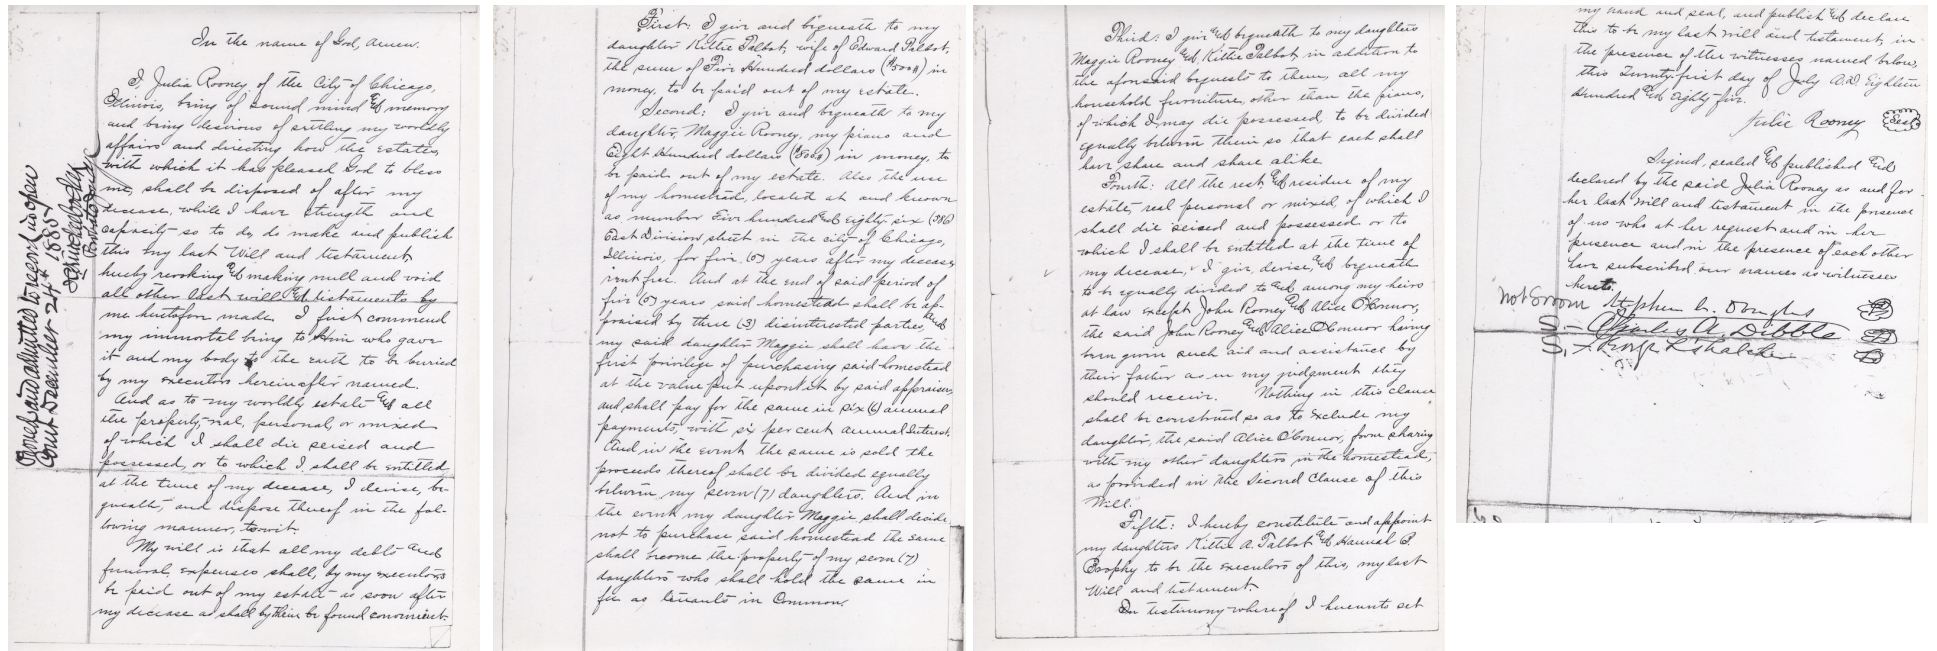 In the name of God, Amen.
I, Julia Rooney, of the City of Chicago,
Illinois, being of sound mind and memory
and being desirous of settling my worldly
affairs and directing how the estates,
with which it has pleased God to bless
me, shall be disposed of after my
decease, while I have strength and
capacity so to do, do make and publish
this my last Will and testament
hereby revoking and making null and void
all other last will and testaments by
me heretofore made. I first commend
my immortal being to Him who gave
it and my body to the earth to be buried
by my executors hereinafter named.
And as to my worldly estate and all
the property, real, personal, or mixed
of which I shall die seised and
possessed, or to which I, shall be entitled
at the time of my decease, I devise, be-
queath, and dispose thereof in the fol-
lowing manner, to wit.
My will is that all my debts and
funeral expenses shall, by my executors
be paid out of my estate as soon after
my decease as shall by them be found convenient.
Proved and admitted to record in open
Court December 24th 1885
Knickerbocker
Probate Judge
First: I give and bequeath to my
daughter Kittie Talbot, wife of Edward Talbot,
the sum of Five Hundred dollars ($500) in
money, to be paid out of my estate.
Second: I give and bequeath to my
daughter, Maggie Rooney, my piano and
Eight Hundred dollars ($800) in money, to
be paid out of my estate. Also the use
of my homestead, located at and known
as number Five hundred and eighty six (586)
East Division street in the city of Chicago,
Illinois, for five (5) years after my decease
rent free. And at the end of said period of
five (5) years said homestead shall be ap-
praised by three (3) disinterested parties, and
my said daughter Maggie shall have the
first privilege of purchasing said homestead
at the value put upon it by said appraisers
and shall pay for the same in six (6) annual
payments, with six per cent annual Interest.
And in the event the same is sold the
proceeds thereof shall be divided equally
between my seven (7) daughters. And in
the event my daughter Maggie shall decide
not to purchase said homestead the same
shall become the property of my seven (7)
daughters who shall hold the same in
fee as tenants in Common.
Third: I give and bequeath to my daughters
Maggie Rooney and Kittie Talbot in addition to
the aforesaid bequests to them, all my
household furniture, other than the piano,
of which I may die possessed, to be divided
equally between them so that each shall
have share and share alike.
Fourth: All the rest and residue of my
estate, real personal or mixed, of which I
shall die seised and possessed or to
which I shall be entitled at the time of
my decease, I give, devise, and bequeath
to be equally divided to and among my heirs
at law except John Rooney and Alice O'Connor,
the said John Rooney and Alice O'Connor having
been given such aid and assistance by
their father as in my judgment they
should receive. Nothing in this clause
shall be construed so as to exclude my
daughter, the said Alice O'Connor, from sharing
with my other daughters in the homestead,
as provided in the Second Clause of this
Will.
Fifth: I hereby constitute and appoint
my daughters Kittie A. Talbot and Hannah P.
Brophy to be the executors of this, my last
Will and testament.
In testimony whereof I hereunto set
my hand and seal, and publish and declare
this to be my last will and testament, in
the presence of the witnesses named below,
this Twenty-first day of July A.D. Eighteen
Hundred and Eighty five.
Julia Rooney Seal
Signed, sealed and published and
declared by the said Julia Rooney as and for
her last will and testament in the presence
of us who at her request and in her
presence and in the presence of each other
have subscribed our names as witnesses
hereto.
not sworn Stephen A. Douglas
S. - Charles A. Dibble
S. - George